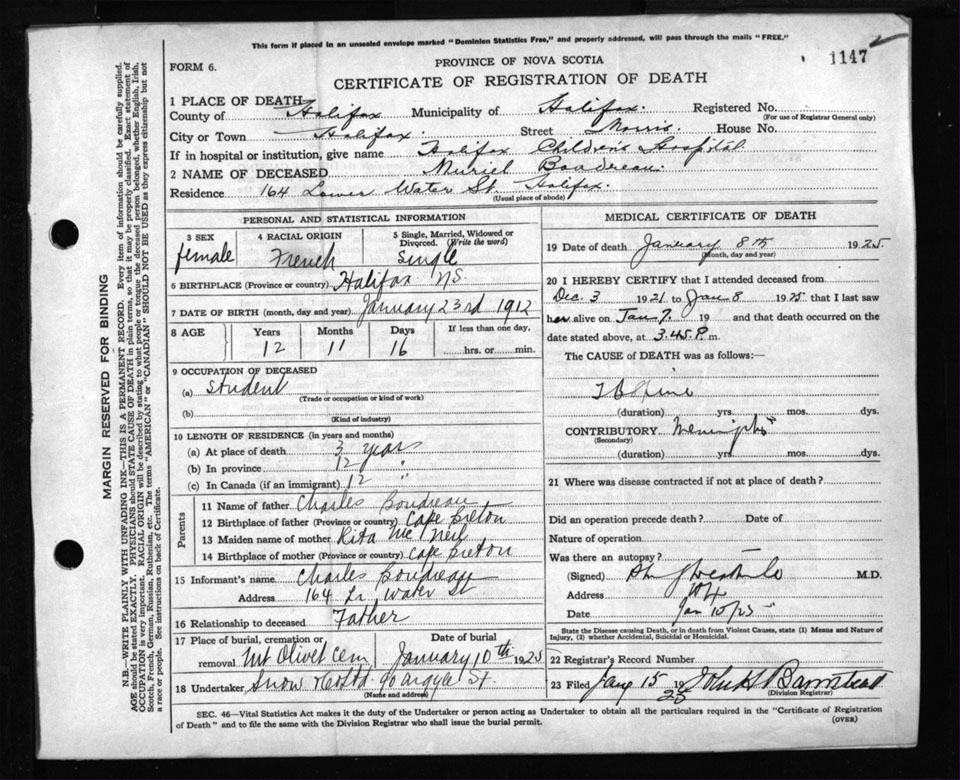 This form if placed in an unsealed envelope marked "Dominion Statistics Free," and properly addressed, will pass through the mails "FREE."
1147
FORM 6.
PROVINCE OF NOVA SCOTIA
CERTIFICATE OF REGISTRATION OF DEATH
1 PLACE OF DEATH
County of Halifax Municipality of Halifax. Registered No.
(For use of Registrar General only)
City or Town Halifax. Street Morris. House No.
If in hospital or institution, give name Halifax Children's Hospital
2 NAME OF DECEASED Muriel Boudreau
Residence 164 Lower Water St. Halifax.
(Usual place of abode)
PERSONAL AND STATISTICAL INFORMATION
3 SEX female
4 RACIAL ORIGIN French
5 Single, Married, Widowed or Divorced. (Write the word) Single
6 BIRTHPLACE (Province or country) Halifax NS.
7 DATE OF BIRTH (month, day and year) January 23rd 1912
8 AGE Years Months Days If less than one day,
12 11 16 hrs. or min.
9 OCCUPATION OF DECEASED
(a) Student
(Trade or occupation or kind of work)
(b)
(Kind of industry)
10 LENGTH OF RESIDENCE (in years and months)
(a) At place of death 3 years
(b) In province 12 "
(c) In Canada (if an immigrant) 12
Parents
11 Name of father Charles Boudreau
12 Birthplace of father (Province or country) Cape Breton
13 Maiden name of mother Rita McNeil
14 Birthplace of mother (Province or country) Cape Breton
15 Informant's name Charles Boudreau
Address 164 Lr. Water St
16 Relationship to deceased Father
17 Place of burial, cremation or removal Mt Olivet Cem
Date of burial January 10th 1925
18 Undertaker Snow & Co Ltd. 90 Argyle St.
(Name and address)
MEDICAL CERTIFICATE OF DEATH
19 Date of death January 8th 1925
(Month, day and year)
20 I HEREBY CERTIFY that I attended deceased from
Dec. 3 1921 to Jan 8 1925 that I last saw
her alive on Jan 7. 19 and that death occurred on
date stated above, at 3.45 P. m.
The CAUSE of DEATH was as follows:
TB Spine
(duration) yrs. mos. dys.
CONTRIBUTORY Meningitis
(Secondary)
(duration) yrs. mos. dys.
21 Where was disease contracted if not at place of death?
Did an operation precede death? Date of
Nature of operation
Was there an autopsy?
(Signed) M.D.
Address
Date Jan 10/25
State the Disease causing Death, or in death from Violent Causes, state (1) Means and Nature of
Injury, (2) whether Accidental, Suicidal or Homicidal.
22 Registrar's Record Number
23 Filed Jany 15 1925 John H Barnstead
(Division Registrar)
SEC. 46—Vital Statistics Act makes it the duty of the Undertaker or person acting as Undertaker to obtain all the particulars required in the "Certificate of Registration
of Death" and to file the same with the Division Registrar who shall issue the burial permit.
(OVER)
MARGIN RESERVED FOR BINDING
N.B.—WRITE PLAINLY WITH UNFADING INK—THIS IS A PERMANENT RECORD. Every item of information should be carefully supplied.
AGE should be stated EXACTLY. PHYSICIANS should STATE CAUSE OF DEATH in plain terms, so that it may be properly classified. Exact statement of
OCCUPATION is very important. RACIAL ORIGIN will be described by stating to what people or tongue the deceased person belonged, whether English, Irish,
Scotch, French, German, Russian, Ruthenian, etc. The terms "AMERICAN" or "CANADIAN" SHOULD NOT BE USED as they express citizenship but not
a race or people. See instructions on back of Certificate.